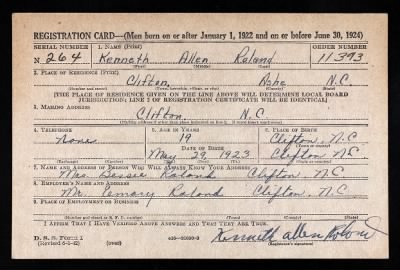 REGISTRATION CARD—(Men born on or after January 1, 1922 and on or before June 30, 1924)
SERIAL NUMBER 1. NAME (Print) ORDER NUMBER
N 264 Kenneth Allen Roland 11393
(First) (Middle) (Last)
2. PLACE OF RESIDENCE (Print)
Clifton Ashe N.C.
(State)
[THE PLACE OF RESIDENCE GIVEN ON THE LINE ABOVE WILL DETERMINE LOCAL BOARD
JURISDICTION; LINE 2 OF REGISTRATION CERTIFICATE WILL BE IDENTICAL]
3. MAILING ADDRESS
Clifton N.C.
[Mailing address if other than place indicated on line 2. If same, insert word same]
4. TELEPHONE 5. AGE IN YEARS 6. PLACE OF BIRTH
None 19 Clifton, N.C
DATE OF BIRTH
May 29, 1923 Clifton N.C
(Exchange) (Number) (Mo.) (Day) (Yr.) (State or country)
7. NAME AND ADDRESS OF PERSON WHO WILL ALWAYS KNOW YOUR ADDRESS
Mrs Bessie Roland Clifton, N.C.
8. EMPLOYER'S NAME AND ADDRESS
Mr. Emory Roland Clifton, N.C
9. PLACE OF EMPLOYMENT OR BUSINESS
(Number and street or R. F. D. number) (Town) (County) (State)
I AFFIRM THAT I HAVE VERIFIED ABOVE ANSWERS AND THAT THEY ARE TRUE.
D. S. S. Form 1
(Revised 6-9-42) (over) Kenneth Allen Roland
(Registrant's signature)